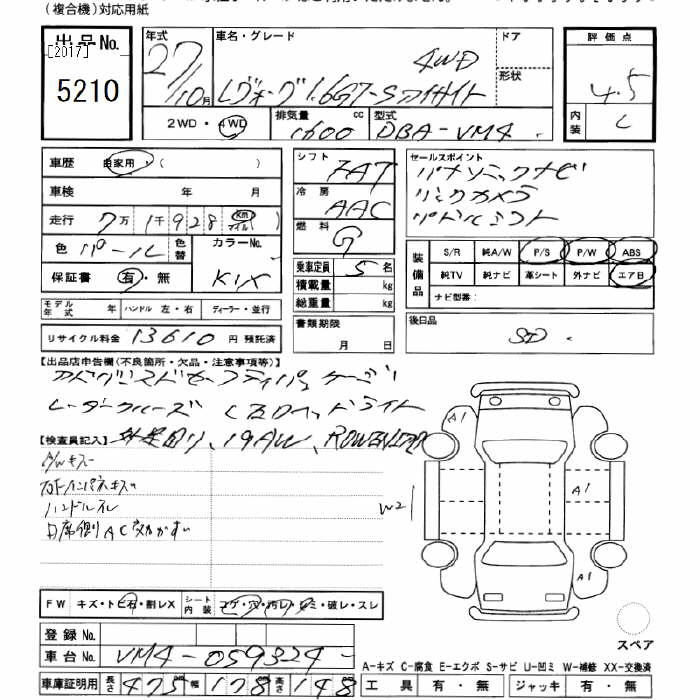 (複合機)対応用紙
出品No.
[2017]
5210
年式
27/10月
車名・グレード
4WD
レヴォーグ1.6GT-Sアイサイト
ドア
形状
評価点
4.5
内装
C
2WD・4WD
排気量 1600 cc
型式 DBA-VM4
車歴 自家用・( )
車検 年 月
走行 7万1千928 (km マイル)
色 パール 色替
カラーNo. K1X
保証書 有・無
モデル年式 年 ハンドル 左・右 ディーラー・並行
リサイクル料金 13610円 預託済
シフト 7AT
冷房 AAC
燃料 G
乗車定員 5名
積載量 kg
総重量 kg
書類期限 月 日
セールスポイント
パナソニックナビ
リヤカメラ
パドルシフト
装備品
S/R 純A/W P/S P/W ABS
純TV 純ナビ 革シート 外ナビ エアB
ナビ型番:
後日品
SD.
【出品店申告欄(不良箇所・欠品・注意事項等)】
レーダークルーズ LEDヘッドライト
【検査員記入】
19AW、
A/Wキズ
ハンドルスレ
A1
A1
W2
A1
FW キズ・トビ石・割レX
シート内装 コゲ・穴・汚レ・シミ・破レ・スレ
登録No.
車台No. VM4-059324
車庫証明用 長さ 475 幅 178 高さ 148
スペア
A-キズ C-腐食 E-エクボ S-サビ U-凹ミ W-補修 XX-交換済
工具 有・無 ジャッキ 有・無